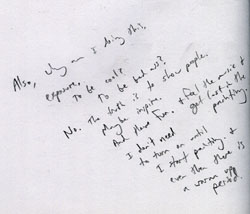 Also, why am I doing this,
exposure, to be cool?
To be bad ass?
No. The truth is to show people.
Maybe inspire.
And have fun. & feel the music &
get lost in the
painting.
I don't need
to turn on until
I start painting &
even then there is
a warm up
period.